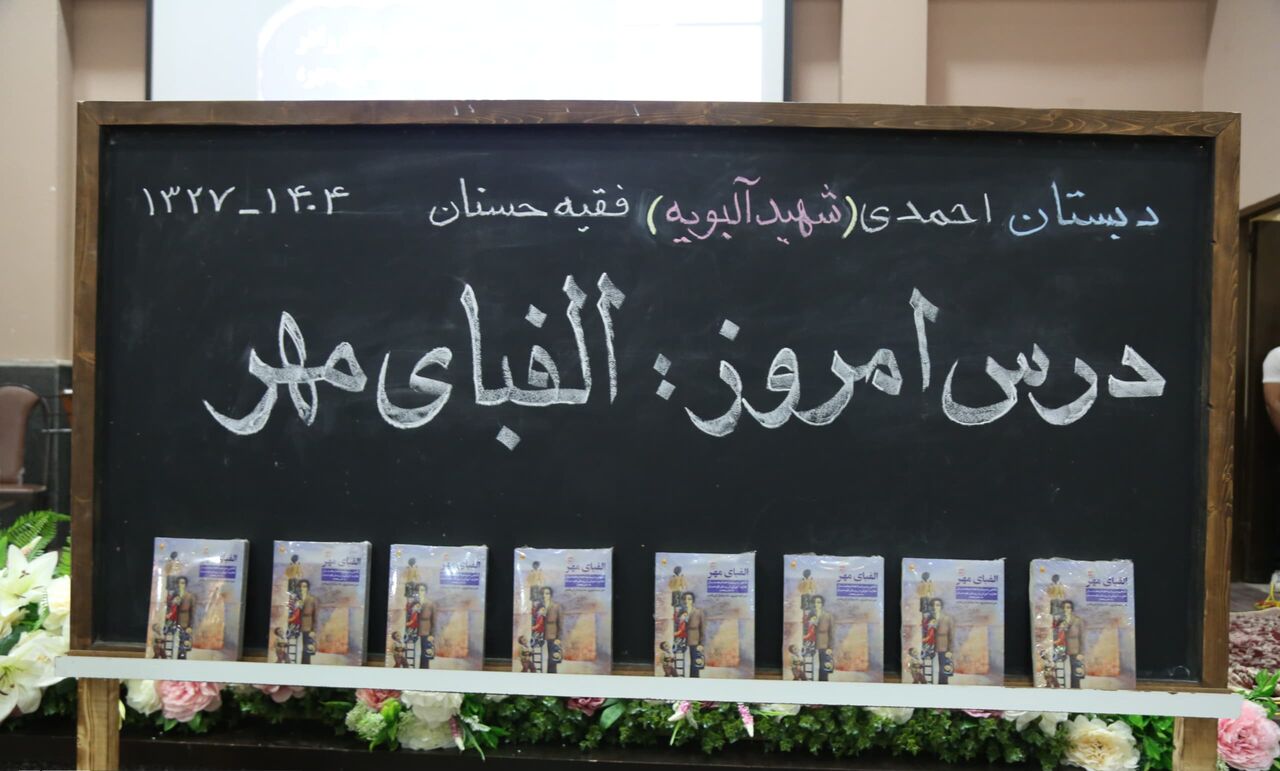 دبستان احمدی (شهید آلبویه) فقیه حسنان ۱۳۲۷-۱۴۰۴
درس امروز: الفبای مهر
الفبای مهر
الفبای مهر
الفبای مهر
الفبای مهر
الفبای مهر
الفبای مهر
الفبای مهر
الفبای مهر